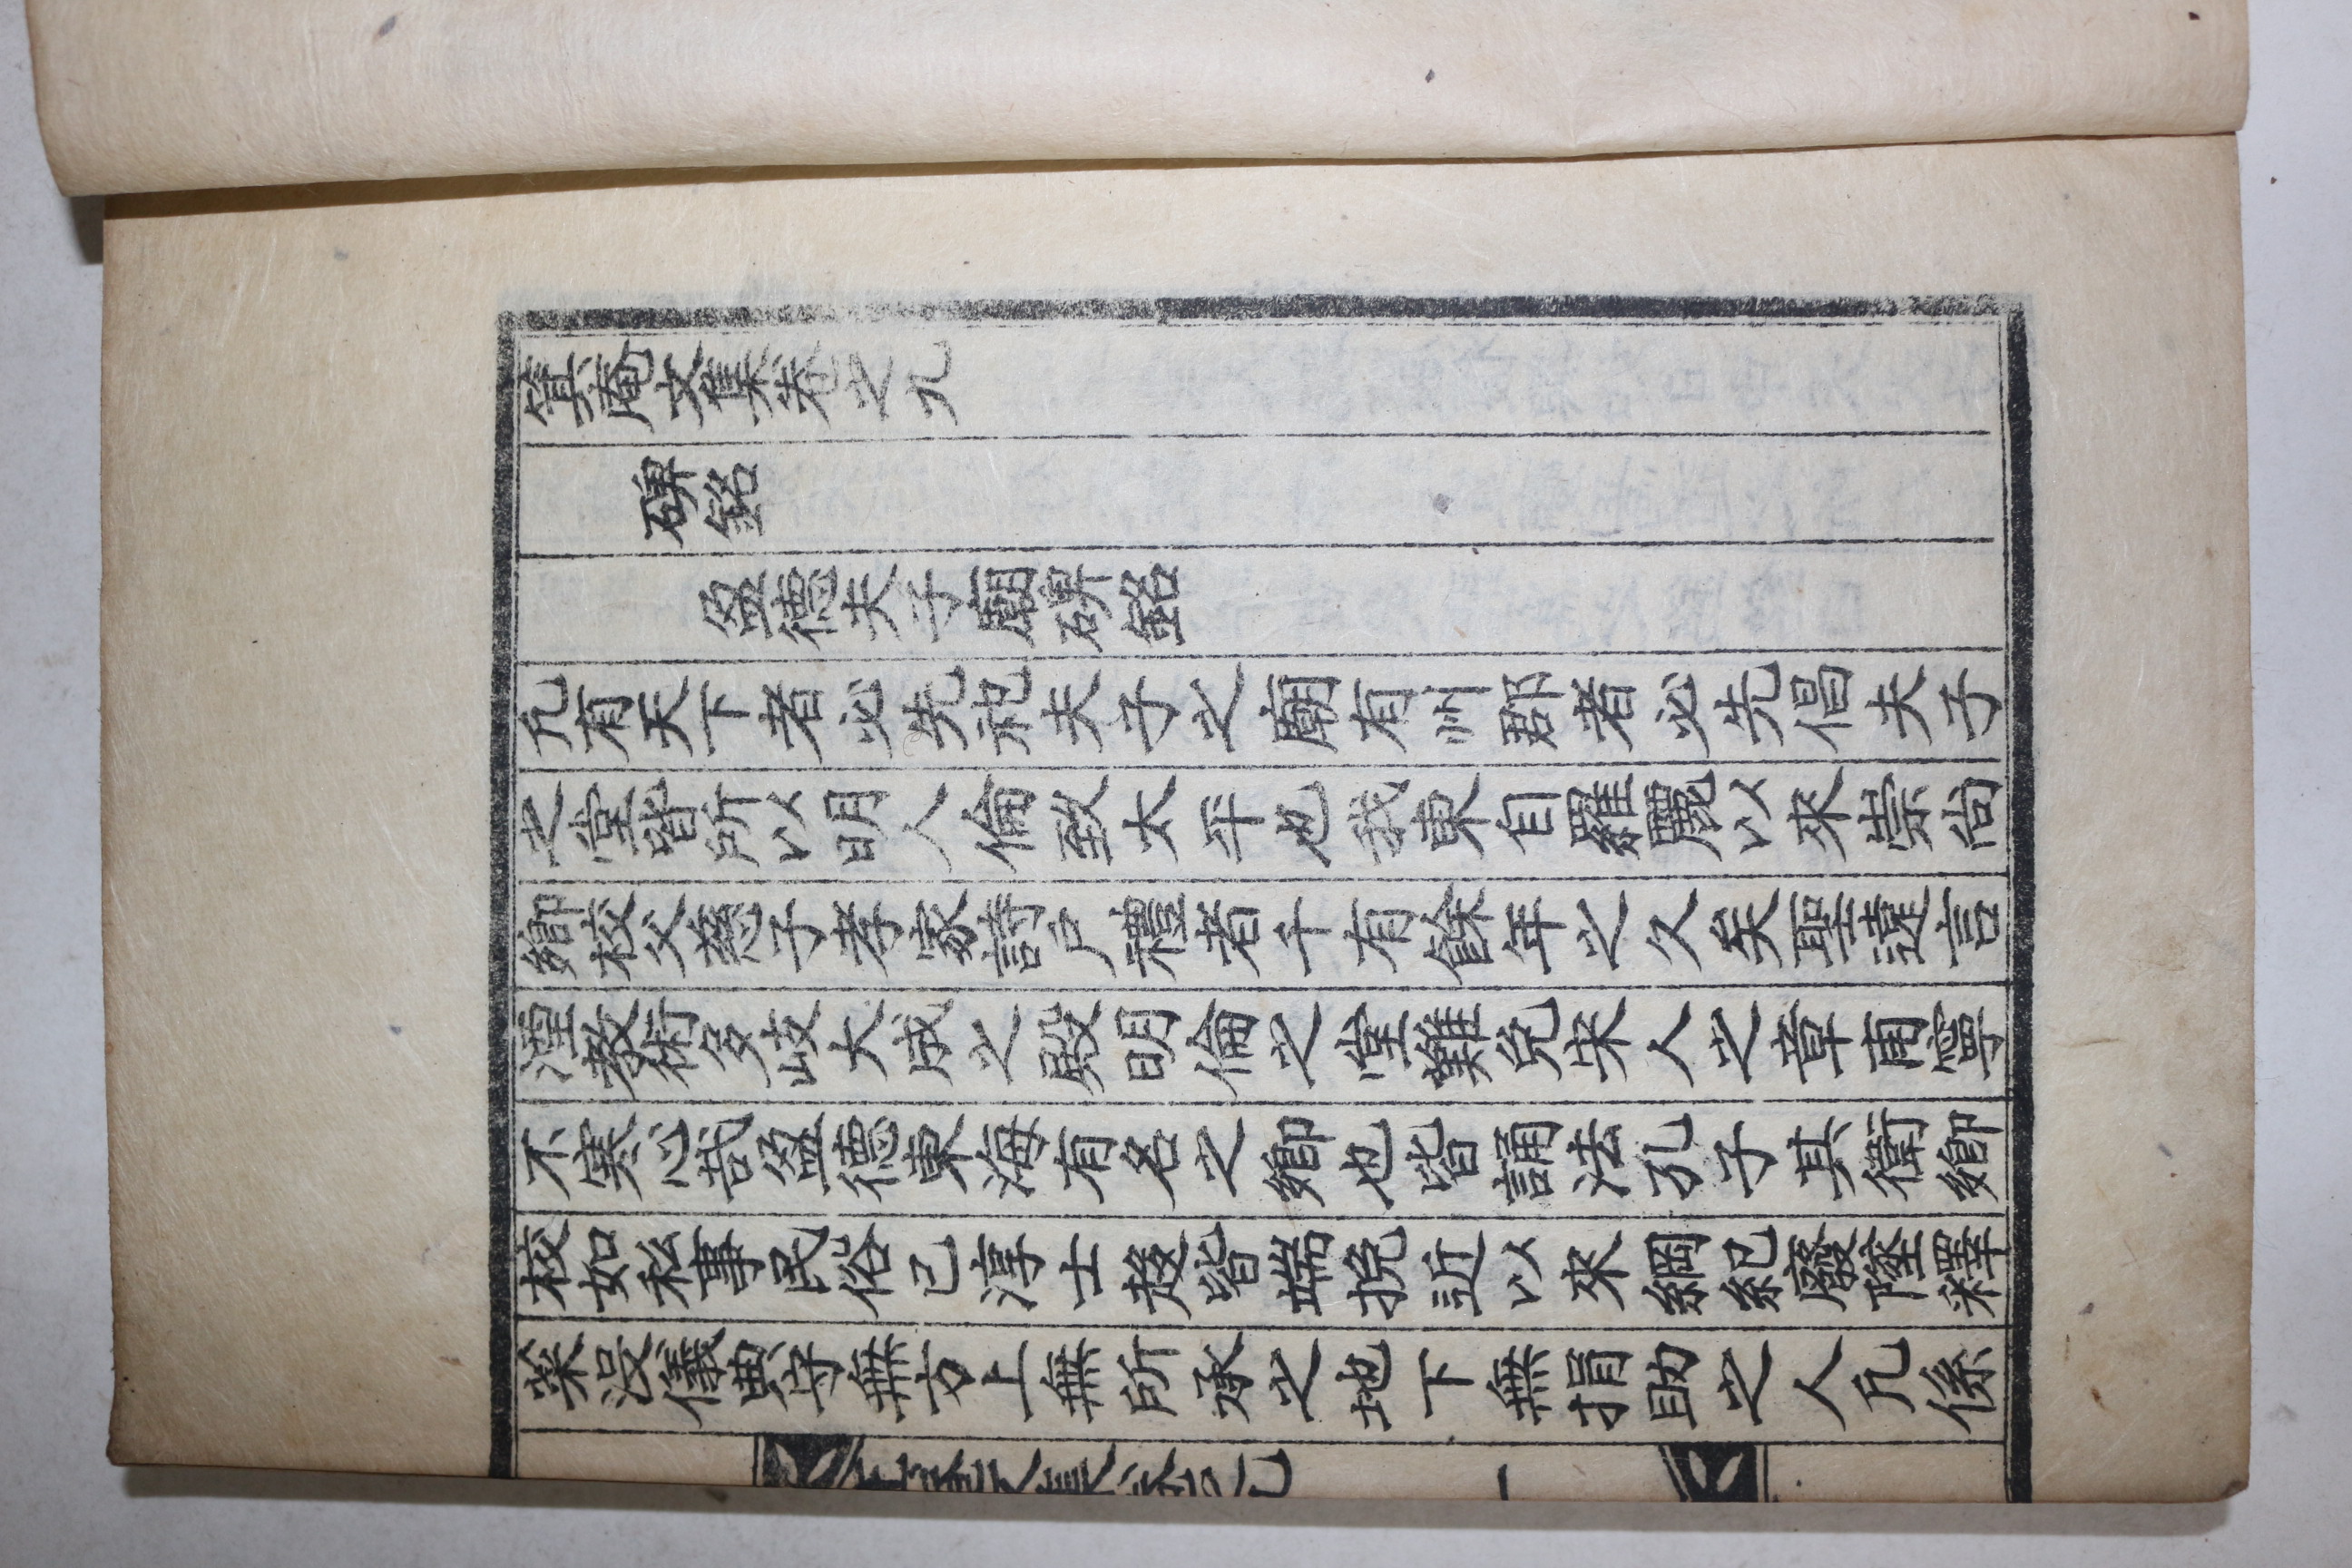 庵文集卷之九
碑銘
盈德夫子廟碑銘
凡有天下者必先祀夫子之廟有州郡者必先倡夫子
之堂皆所以明人倫致太平也我東自羅麗以來崇尙
鄕校父慈子孝家詩戶禮者千有餘年之久矣聖遠言
湮敎術多岐大成之殿明倫之堂難免宋人之章甫寧
不寒心哉盈德東海有名之鄕也皆誦法孔子其衛鄕
校如私事民俗已淳士趍皆端挽近以來綱紀廢墮釋
菜沒儀典守無方上無所承之地下無捐助之人凡係